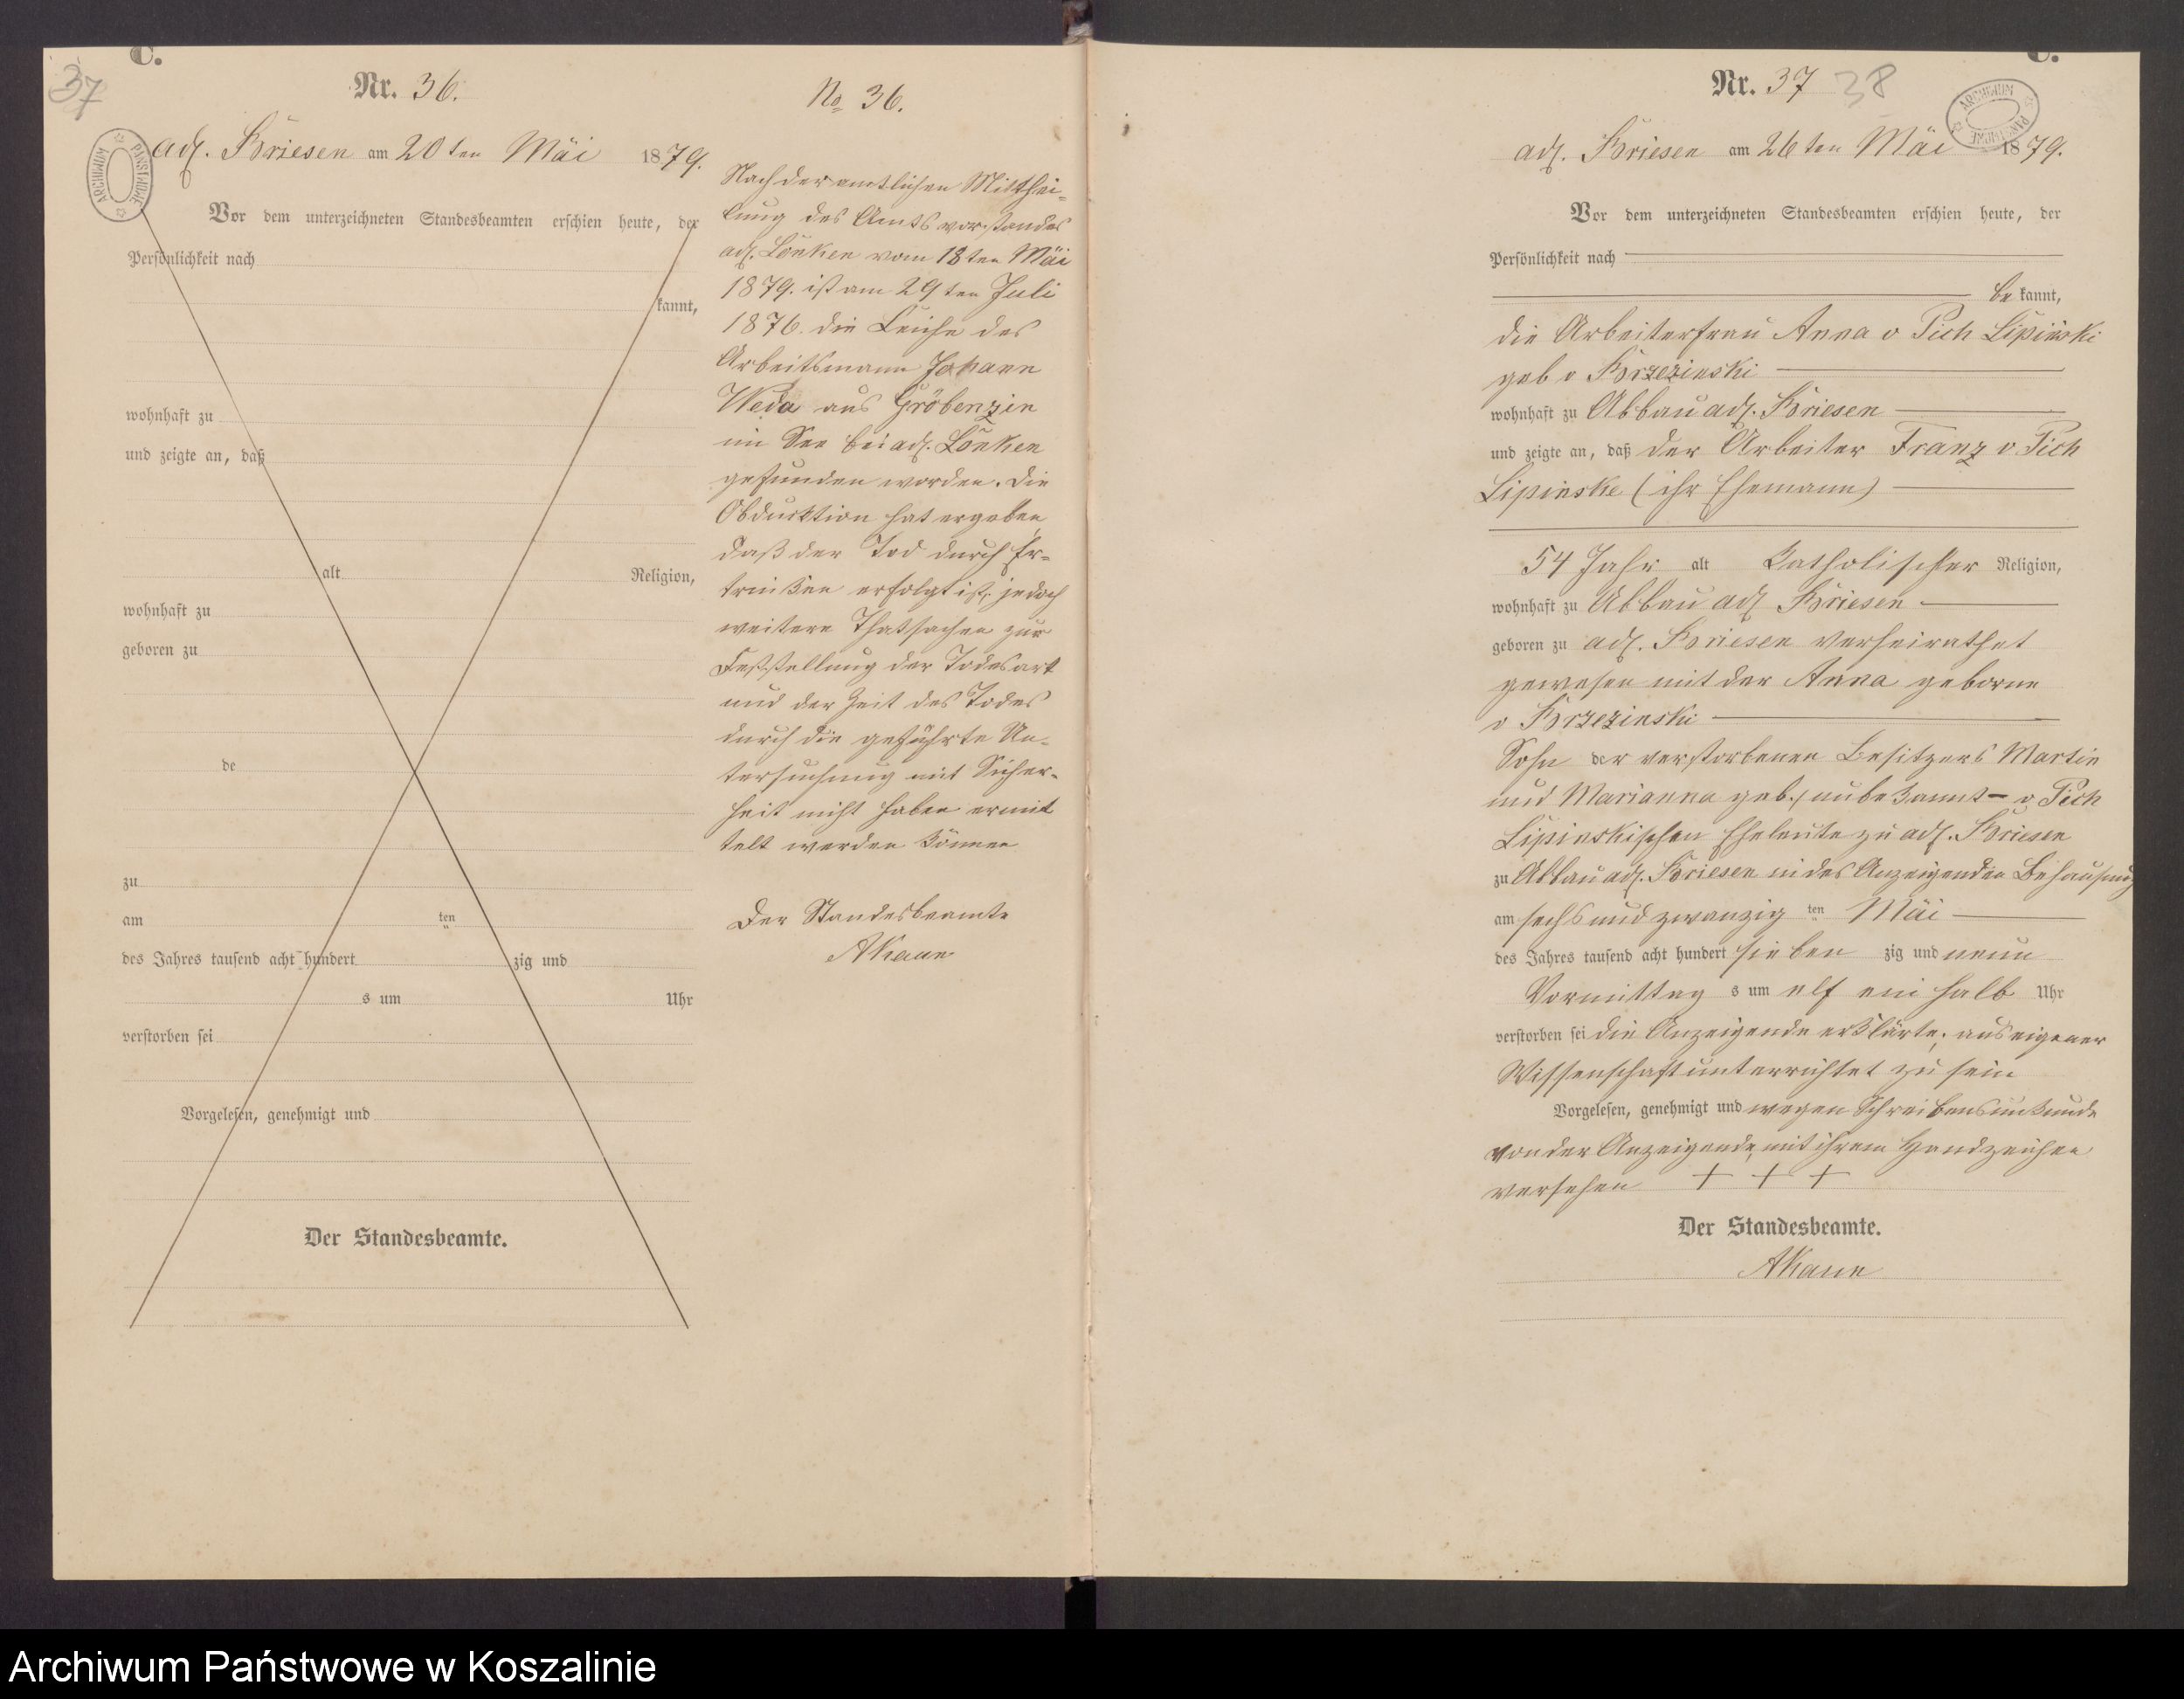 37
C.
Nr. 36.
ARCHIWUM PAŃSTWOWE
adl. Briesen am 20ten Mäi 1879.
Vor dem unterzeichneten Standesbeamten erschien heute, der
Persönlichkeit nach
kannt,
wohnhaft zu
und zeigte an, daß
alt Religion,
wohnhaft zu
geboren zu
de
zu
am ten
des Jahres tausend acht hundert zig und
s um Uhr
verstorben sei
Vorgelesen, genehmigt und
Der Standesbeamte.
No 36.
Nach der amtlichen Mitthei-
lung des Amtsvorstandes
adl. Lonken vom 18ten Mäi
1879. ist am 29ten Juli
1876. die Leiche des
Arbeitsmann Johann
Weda aus Gröbenzin
im See bei adl. Lonken
gefunden worden. Die
Obducktion hat ergeben
daß der Tod durch Er-
trinken erfolgt ist, jedoch
weitere Thatsachen zur
Feststellung der Todesart
und der Zeit des Todes
durch die geführte Un-
tersuchung mit Sicher-
heit nicht haben ermit
telt werden können
Der Standesbeamte
C.
Nr. 37 38
ARCHIWUM PAŃSTWOWE
adl. Briesen am 26ten Mäi 1879.
Vor dem unterzeichneten Standesbeamten erschien heute, der
Persönlichkeit nach
be kannt,
die Arbeiterfrau Anna v Pich Lipinski
geb v Brzezinski
wohnhaft zu Abbau adl. Briesen
und zeigte an, daß der Arbeiter Franz v Pich
Lipinske (ihr Ehemann)
54 Jahr alt Katholischer Religion,
wohnhaft zu Abbau adl Briesen
geboren zu adl. Briesen verheirathet
gewesen mit der Anna geborne
v Brzezinski
Sohn der verstorbenen Besitzers Martin
und Marianna geb. unbekannt - v Pich
Lipinskischen Eheleute zu adl. Briesen
zu Abbau adl. Briesen in des Anzeigenden Behausung
am sechsundzwanzig ten Mäi
des Jahres tausend acht hundert sieben zig und neun
Vormittag s um elf ein halb Uhr
verstorben sei die Anzeigende erklärte, aus eigener
Wissenschaft unterrichtet zu sein
Vorgelesen, genehmigt und wegen Schreibensunkunde
von der Anzeigende mit ihrem Handzeichen
versehen + + +
Der Standesbeamte.
Archiwum Państwowe w Koszalinie